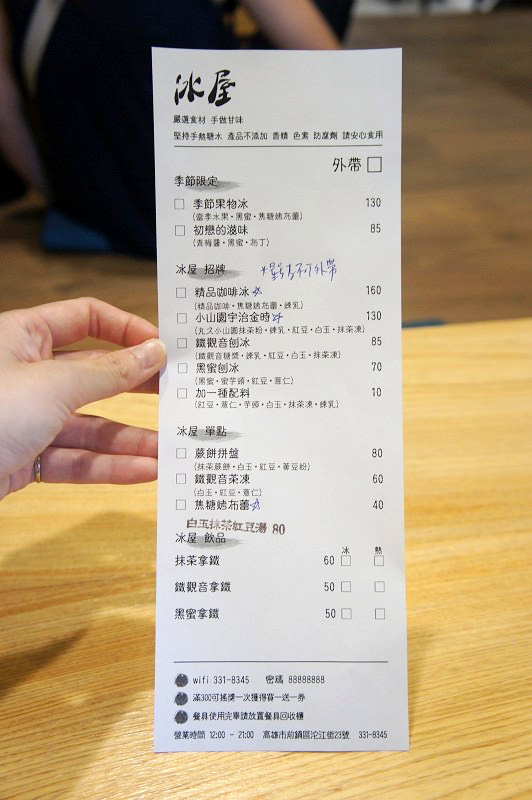 冰屋
嚴選食材 手做甘味
堅持手熬糖水 產品不添加 香精 色素 防腐劑 請安心食用
外帶 □
季節限定
□ 季節果物冰 130
(當季水果・黑蜜・焦糖烤布蕾)
□ 初戀的滋味 85
(青梅醬・黑蜜・布丁)
冰屋 招牌 *星號不可外帶
□ 精品咖啡冰☆ 160
(精品咖啡・焦糖烤布蕾・煉乳)
□ 小山園宇治金時☆ 130
(丸久小山園抹茶粉・煉乳・紅豆・白玉・抹茶凍)
□ 鐵觀音刨冰 85
(鐵觀音糖漿・煉乳・紅豆・白玉・抹茶凍)
□ 黑蜜刨冰 70
(黑蜜・蜜芋頭・紅豆・薏仁)
□ 加一種配料 10
(紅豆・薏仁・芋頭・白玉・抹茶凍・煉乳)
冰屋 單點
□ 蕨餅拼盤 80
(抹茶蕨餅・白玉・紅豆・黃豆粉)
□ 鐵觀音茶凍 60
(白玉・紅豆・薏仁)
□ 焦糖烤布蕾☆ 40
白玉抹茶紅豆湯 80
冰屋 飲品 冰 熱
抹茶拿鐵 60 □ □
鐵觀音拿鐵 50 □ □
黑蜜拿鐵 50 □ □
wifi 331-8345 密碼 88888888
滿300可搖獎一次獲得買一送一券
餐具使用完畢請放置餐具回收櫃
營業時間 12:00 - 21:00 高雄市前鎮區沱江街23號 331-8345